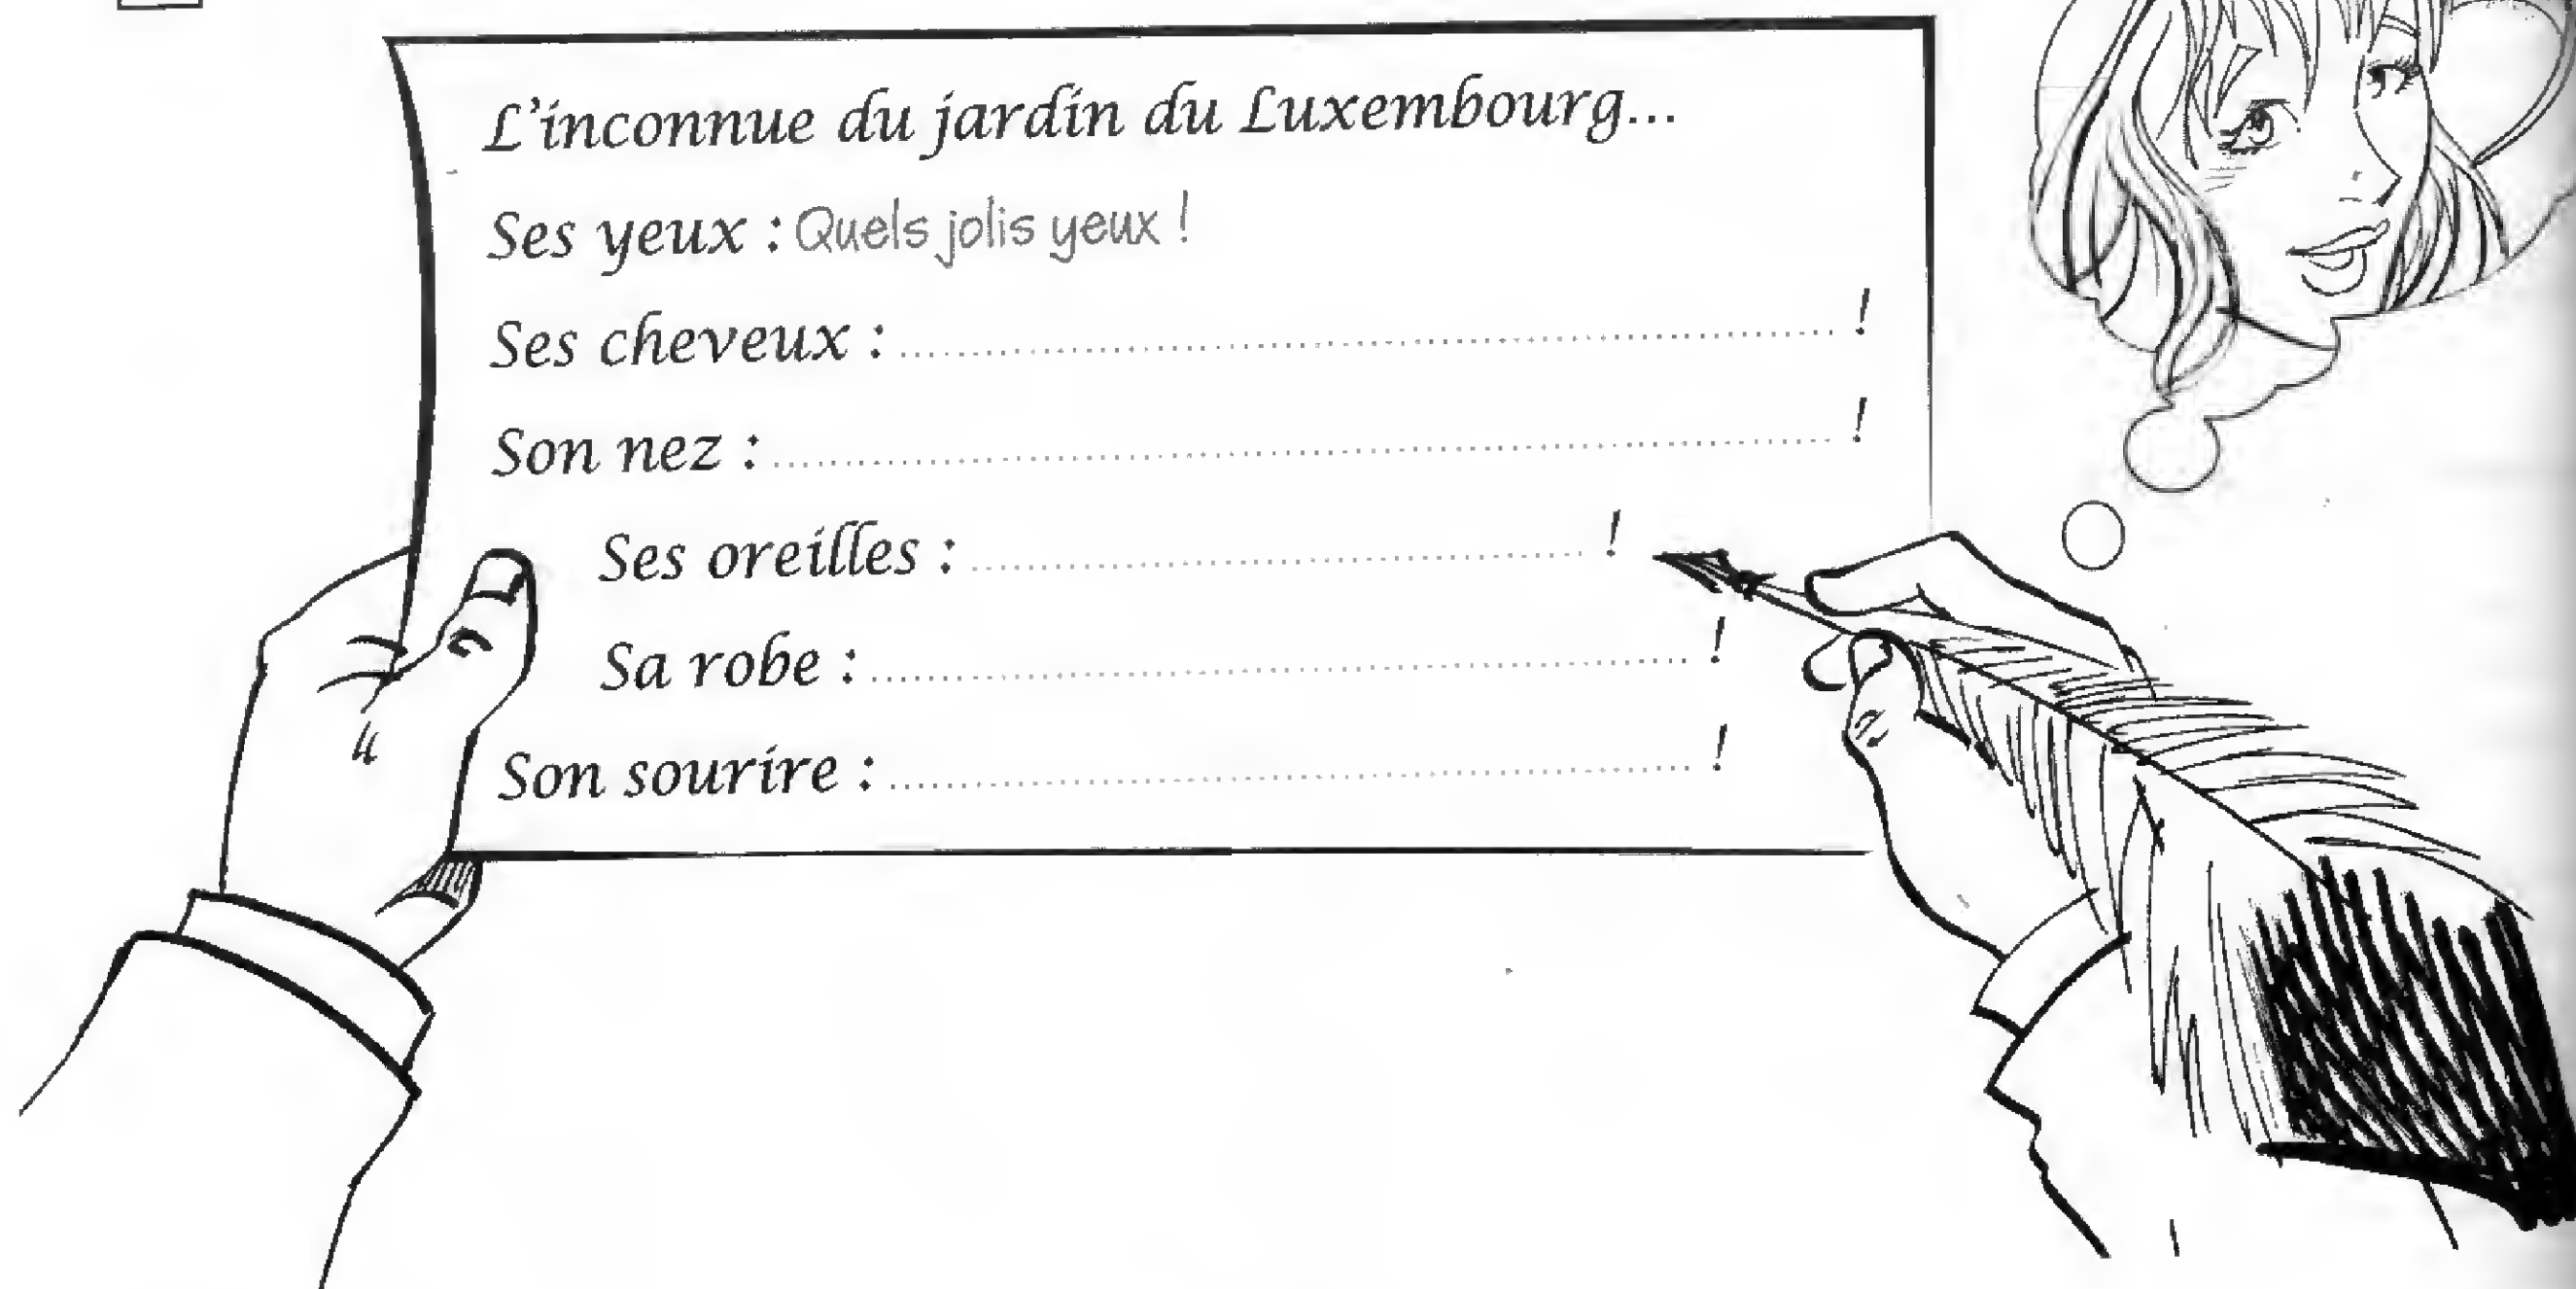 L'inconnue du jardin du Luxembourg...
Ses yeux : Quels jolis yeux !
Ses cheveux : ........................ !
Son nez : ........................ !
Ses oreilles : ........................ !
Sa robe : ........................ !
Son sourire : ........................ !